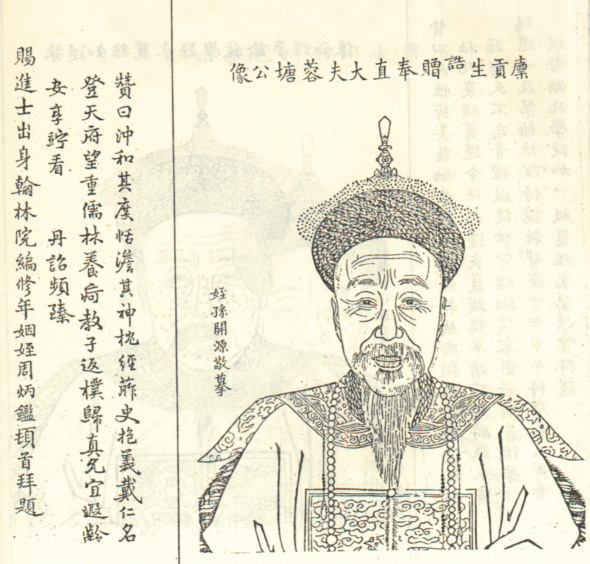 廩貢生誥贈奉直大夫蓉塘公像
姪孫開源敬摹
贊曰沖和其度恬澹其神枕經葄史抱義戴仁名
登天府望重儒林養疴教子返樸歸真允宜遐齡
安享竚看 丹詔頻臻
賜進士出身翰林院編修年姻姪周炳鑑頓首拜題